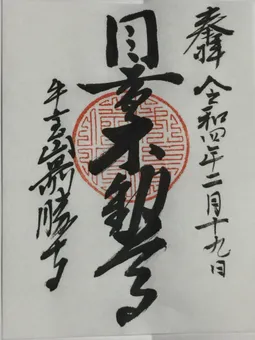 奉拝 令和四年二月十九日
目黄不動尊
牛宝山最勝寺